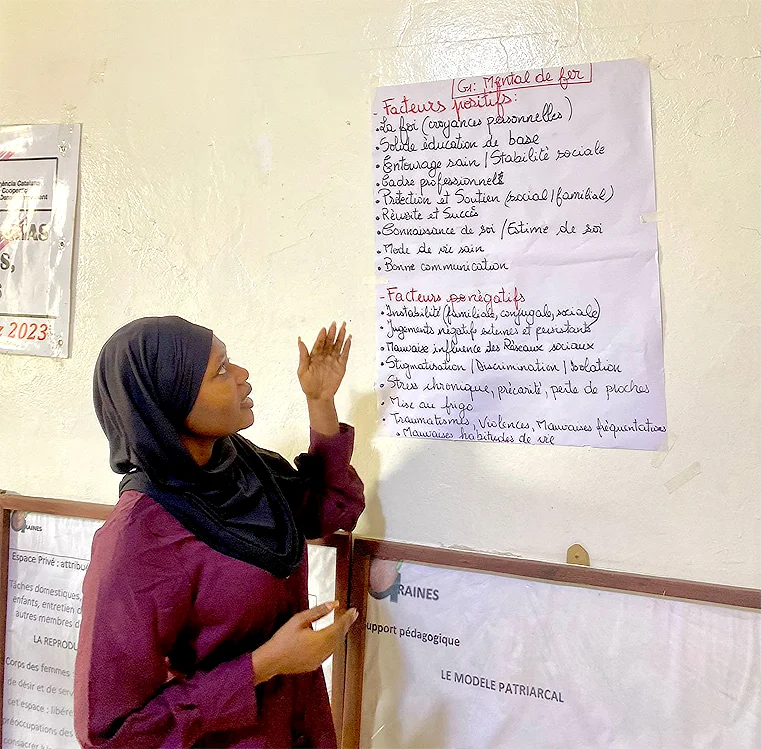 G1: Mental de fer
- Facteurs positifs:
• La foi (croyances personnelles)
• Solide éducation de base
• Entourage sain / Stabilité sociale
• Cadre professionnel
• Protection et Soutien (social / familial)
• Réussite et Succès
• Connaissance de soi / Estime de soi
• Mode de vie sain
• Bonne communication
- Facteurs négatifs
• Instabilité (familiale, conjugale, sociale)
• Jugements négatifs externes et persistants
• Mauvaise influence des Réseaux sociaux
• Stigmatisation / Discrimination / Isolation
• Stress chronique, précarité, perte de proches
• Mise au frigo
• Traumatismes, Violences, Mauvaises fréquentations
• Mauvaises habitudes de vie
ència Catalana
Cooperació
2023
RAINES
Espace Privé : attribu
Tâches domestiques,
enfants, entretien d
autres membres d
LA REPRODU
Corps des femmes
de désir et de serv
cet espace : libére
préoccupations des
consacrer
RAINES
support pédagogique
LE MODELE PATRIARCAL